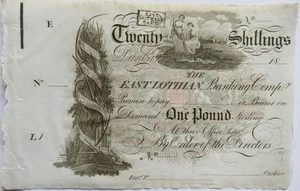 E
Twenty Shillings
Dunbar 18
THE
EAST LOTHIAN Banking Compy
No
Promise to pay or Bearer on
Demand One Pound Sterling
At their Office here
L1
By Order of the Directors
Entd.
Cashier